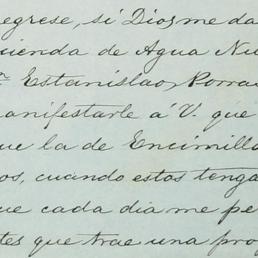 egrese, si Dios me da
ienda de Agua Nu
n Estanislao Porra
anifestarle á V. que
ue la de Encinilla
os, cuando estos tenga
ue cada dia me pe
tes que trae una pro